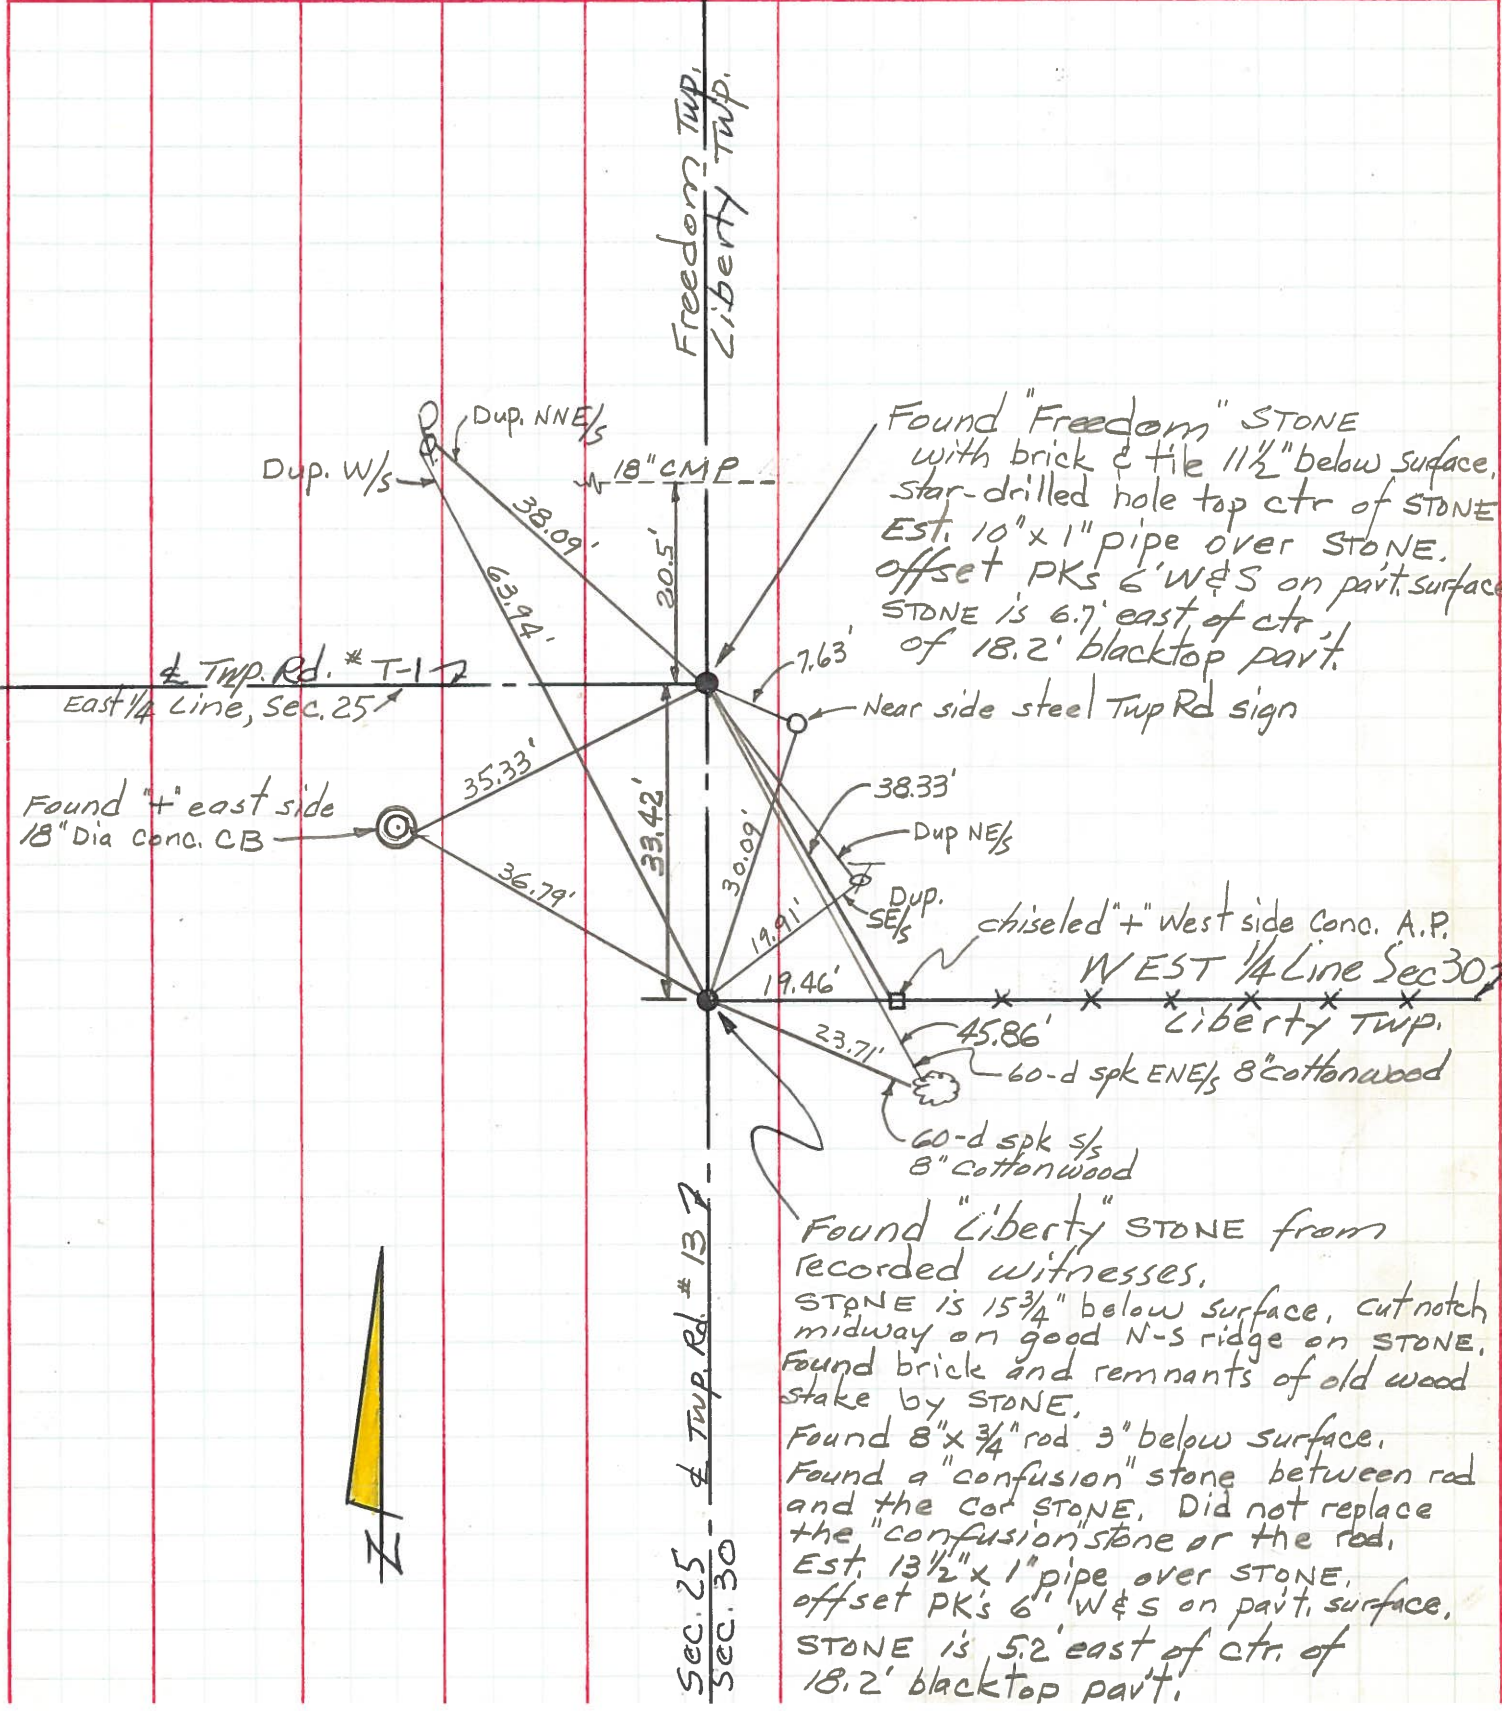 Freedom Twp.
Liberty Twp.
Dup. NNE/s
Dup. W/s
18" CMP
38.09'
63.94'
20.5'
Found "Freedom" STONE
with brick & tile 11½" below surface.
star-drilled hole top ctr of STONE
Est. 10" x 1" pipe over STONE.
offset PKs 6" W & S on pav't. surface
STONE is 6.7' east of ctr.
of 18.2' blacktop pav't.
7.63'
Near side steel Twp Rd sign
℄ Twp. Rd. # T-1
East ¼ Line, Sec. 25
35.33'
Found "+" east side
18" Dia Conc. CB
36.79'
33.42'
30.09'
38.33'
Dup NE/s
Dup.
SE/s
19.91'
chiseled "+" West side Conc. A.P.
WEST ¼ Line Sec 30
19.46'
Liberty Twp.
23.71'
45.86'
60-d spk ENE/s 8" cottonwood
60-d spk s/s
8" cottonwood
Found "Liberty" STONE from
recorded witnesses.
STONE is 15¾" below surface. cut notch
midway on good N-S ridge on STONE.
Found brick and remnants of old wood
stake by STONE.
Found 8" x ¾" rod 3" below surface.
Found a "confusion" stone between rod
and the Cor STONE. Did not replace
the "confusion" stone or the rod.
Est. 13½" x 1" pipe over STONE.
offset PK's 6" W & S on pav't. surface.
STONE is 5.2' east of ctr. of
18.2' blacktop pav't.
℄ Twp. Rd. # 13
Sec. 25
Sec. 30
N